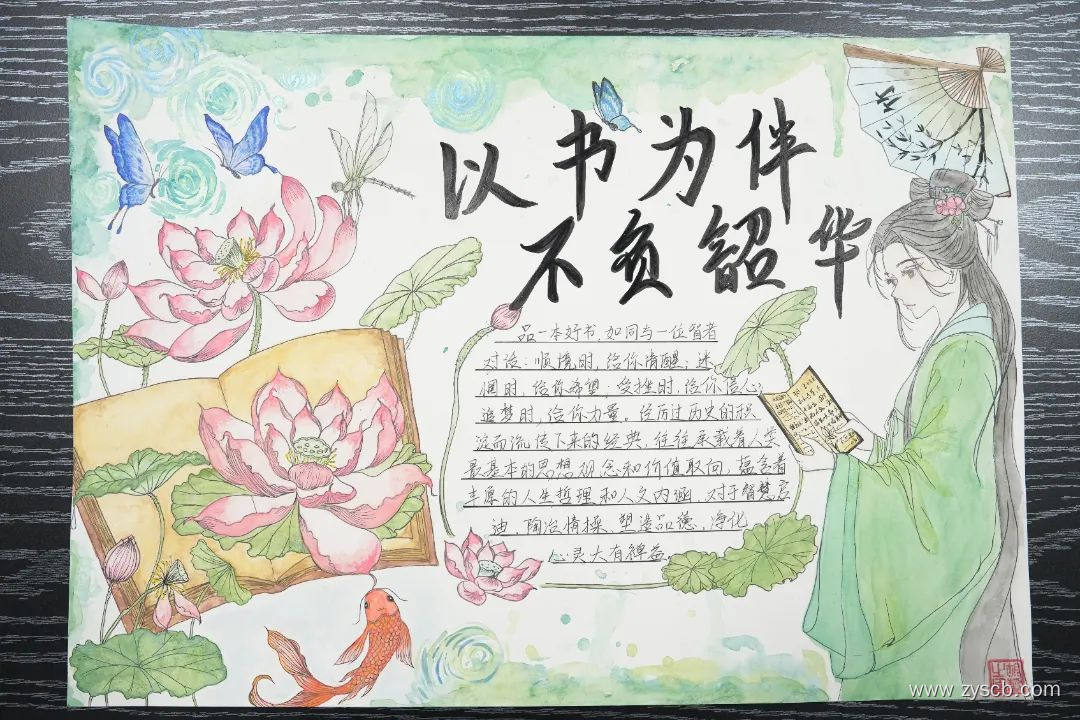 以书为伴
不负韶华
品一本好书,如同与一位智者
对谈:顺境时,给你清醒;迷
惘时,给你希望;受挫时,给你信心;
追梦时,给你力量。经历过历史的积
淀而流传下来的经典,往往承载着人类
最基本的思想观念和价值取向,蕴含着
丰厚的人生哲理和人文内涵,对于智慧启
迪,陶冶情操、塑造品德,净化
心灵大有裨益。
竹
www.zyscb.com